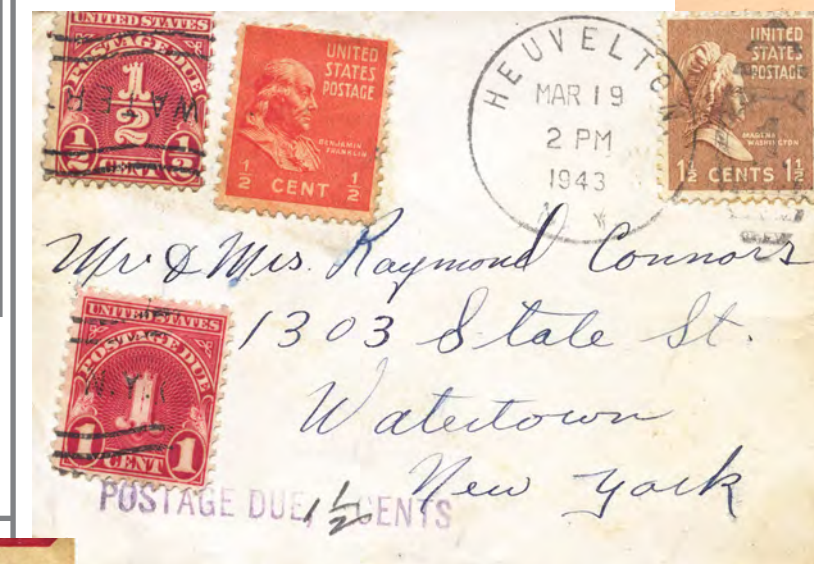 UNITED STATES
POSTAGE DUE
1/2
½ CENT ½
WATER
UNITED
STATES
POSTAGE
BENJAMIN
FRANKLIN
½ CENT ½
HEUVELTON
MAR 19
2 PM
1943
N Y
UNITED
STATES
POSTAGE
MARTHA
WASHINGTON
1½ CENTS 1½
Mr & Mrs. Raymond Connors
1303 State St.
Watertown
New York
UNITED STATES
POSTAGE DUE
1
1 CENT 1
N.Y.
POSTAGE DUE, 1½ CENTS